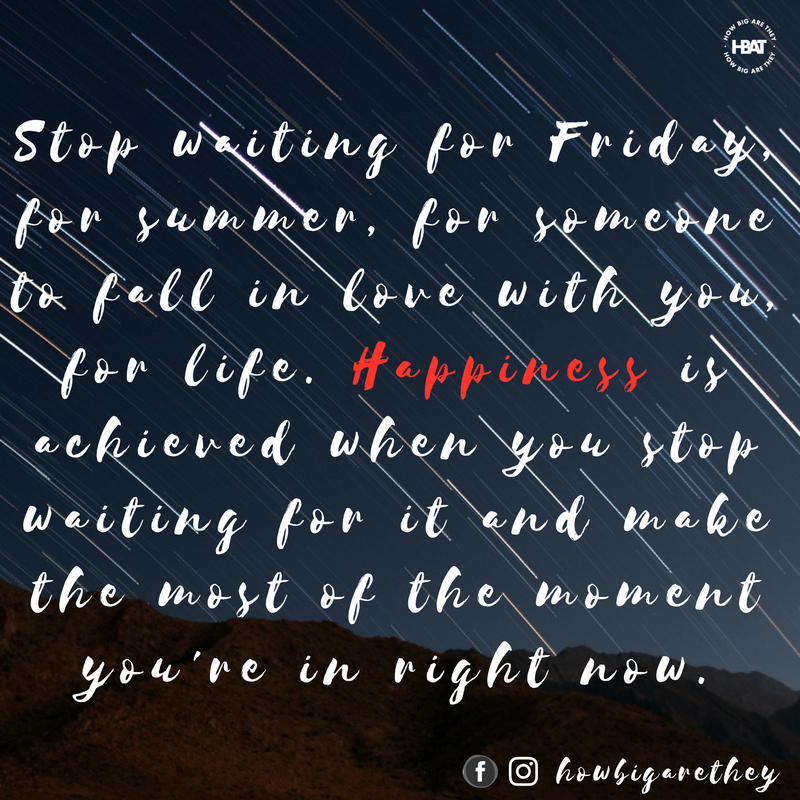 HOW BIG ARE THEY
HBAT
HOW BIG ARE THEY
Stop waiting for Friday,
for summer, for someone
to fall in love with you,
for life. Happiness is
achieved when you stop
waiting for it and make
the most of the moment
you're in right now.
f howbigarethey